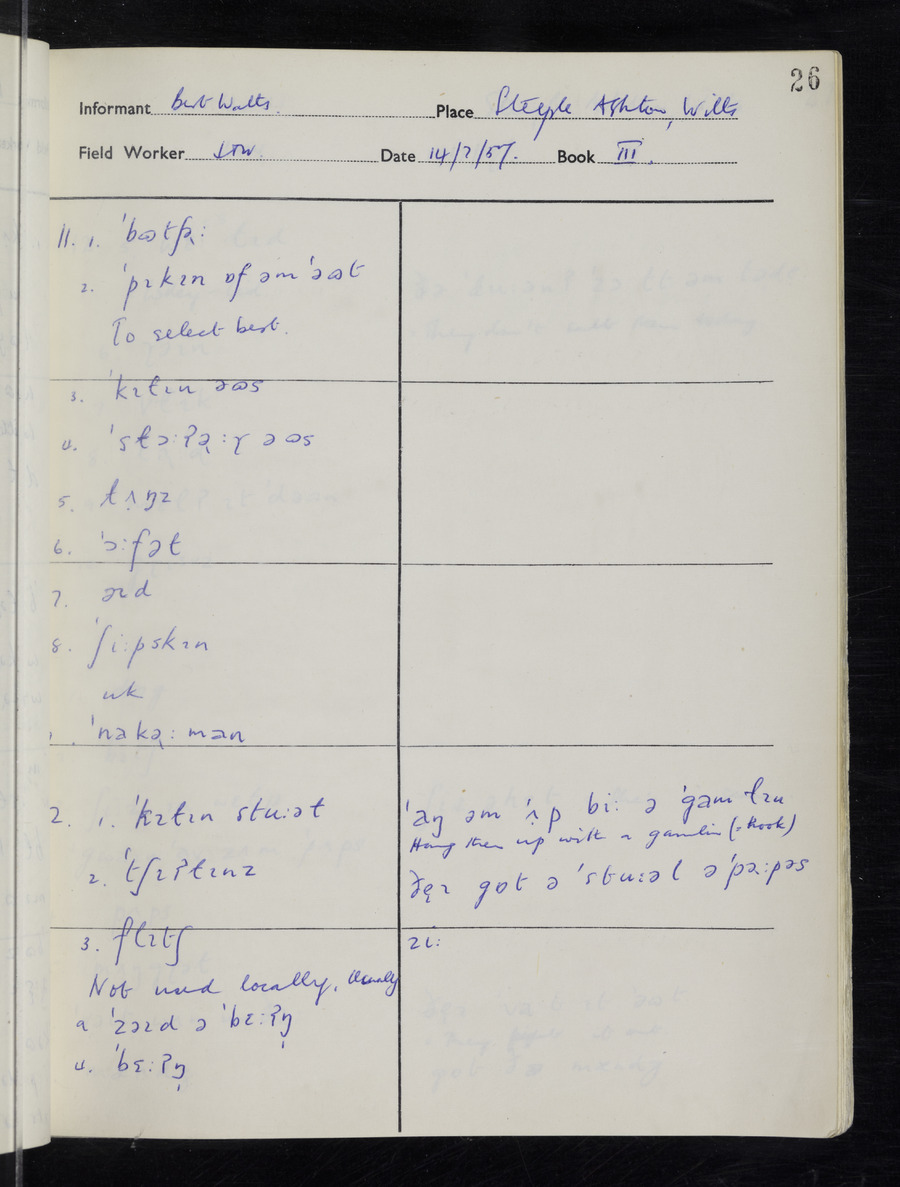 26
Informant Bert Watts. Place Steeple Ashton, Wilts
Field Worker Date 14/7/57. Book III.
11. 1. ˈbɷtʃə̢ː
2. ˈpɪkɪn ɒf əm ˈəɷt
To select best.
3. ˈkɪlɪn əɷs
4. ˈslɔːʔə̢ːɼ əɷs
5. lʌ̣ŋz
6. ˈɔːfəl
7. əɪd
8. ˈʃiːpskɪn
uk
ˈnakə̢ː man
2. 1. ˈkɪlɪn stuːəl
2. ˈtʃɪʔlɪnz
3. flɪtʃ
Not used locally. Usually
a ˈzəɪd ə ˈbɛːʔŋ̩
4. ˈbɛːʔŋ̩
ˈaŋ əm ˈʌ̣p biː ə ˈgamlɪn
Hang them up with a gamlin (= hook)
ðe̢ɪ gɒt ə ˈstuːəl əˈpəːpəs
ziː